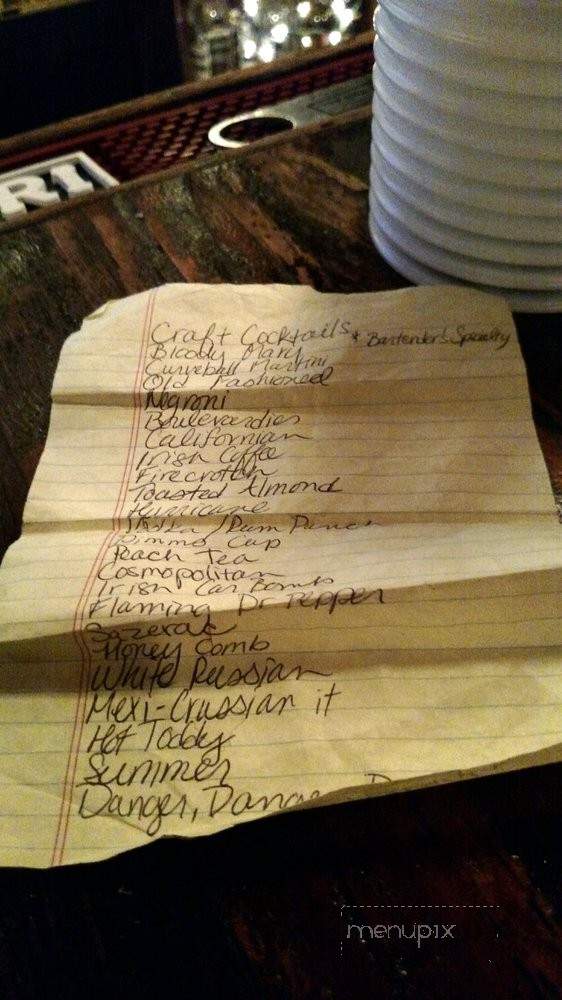 RI
Craft Cocktails * Bartender's Specialty
Bloody Mary
Curveball Martini
Old Fashioned
Negroni
Boulevardier
Californian
Irish Coffe
Toasted Almond
Hurricane
Rum Punch
Pimms Cup
Peach Tea
Cosmopolitan
Irish Car Bombs
Flaming Dr Pepper
Sazerac
Honey Comb
White Russian
Mexi-Crussian it
Hot Toddy
Summer
Danger, Danger
menupix